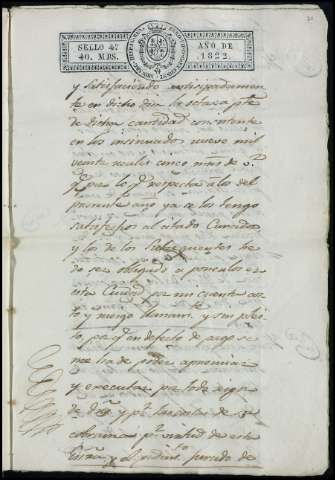 SELLO 4º
40. MRS.
AÑO DE
1822.
y satisfaciendo anticipadamen
te en dicho dia la octava pte
de dicha cantidad consistente
en los mil
veinte reales cinco mrs de
q. por lo q. respecta a los del
presente año ya se los tengo
satisfechos al citado
y los de los subsequentes he
de ser obligado a ponerlos en
esta Ciudad por mi cuenta cos
to y riesgo y sin plei
to, por q. en defecto de pago se
me ha de poder apremiar
y executar por todo rigor
de y pr las costas de su
cobranza pr virtud de esta
Essra y el jurado de